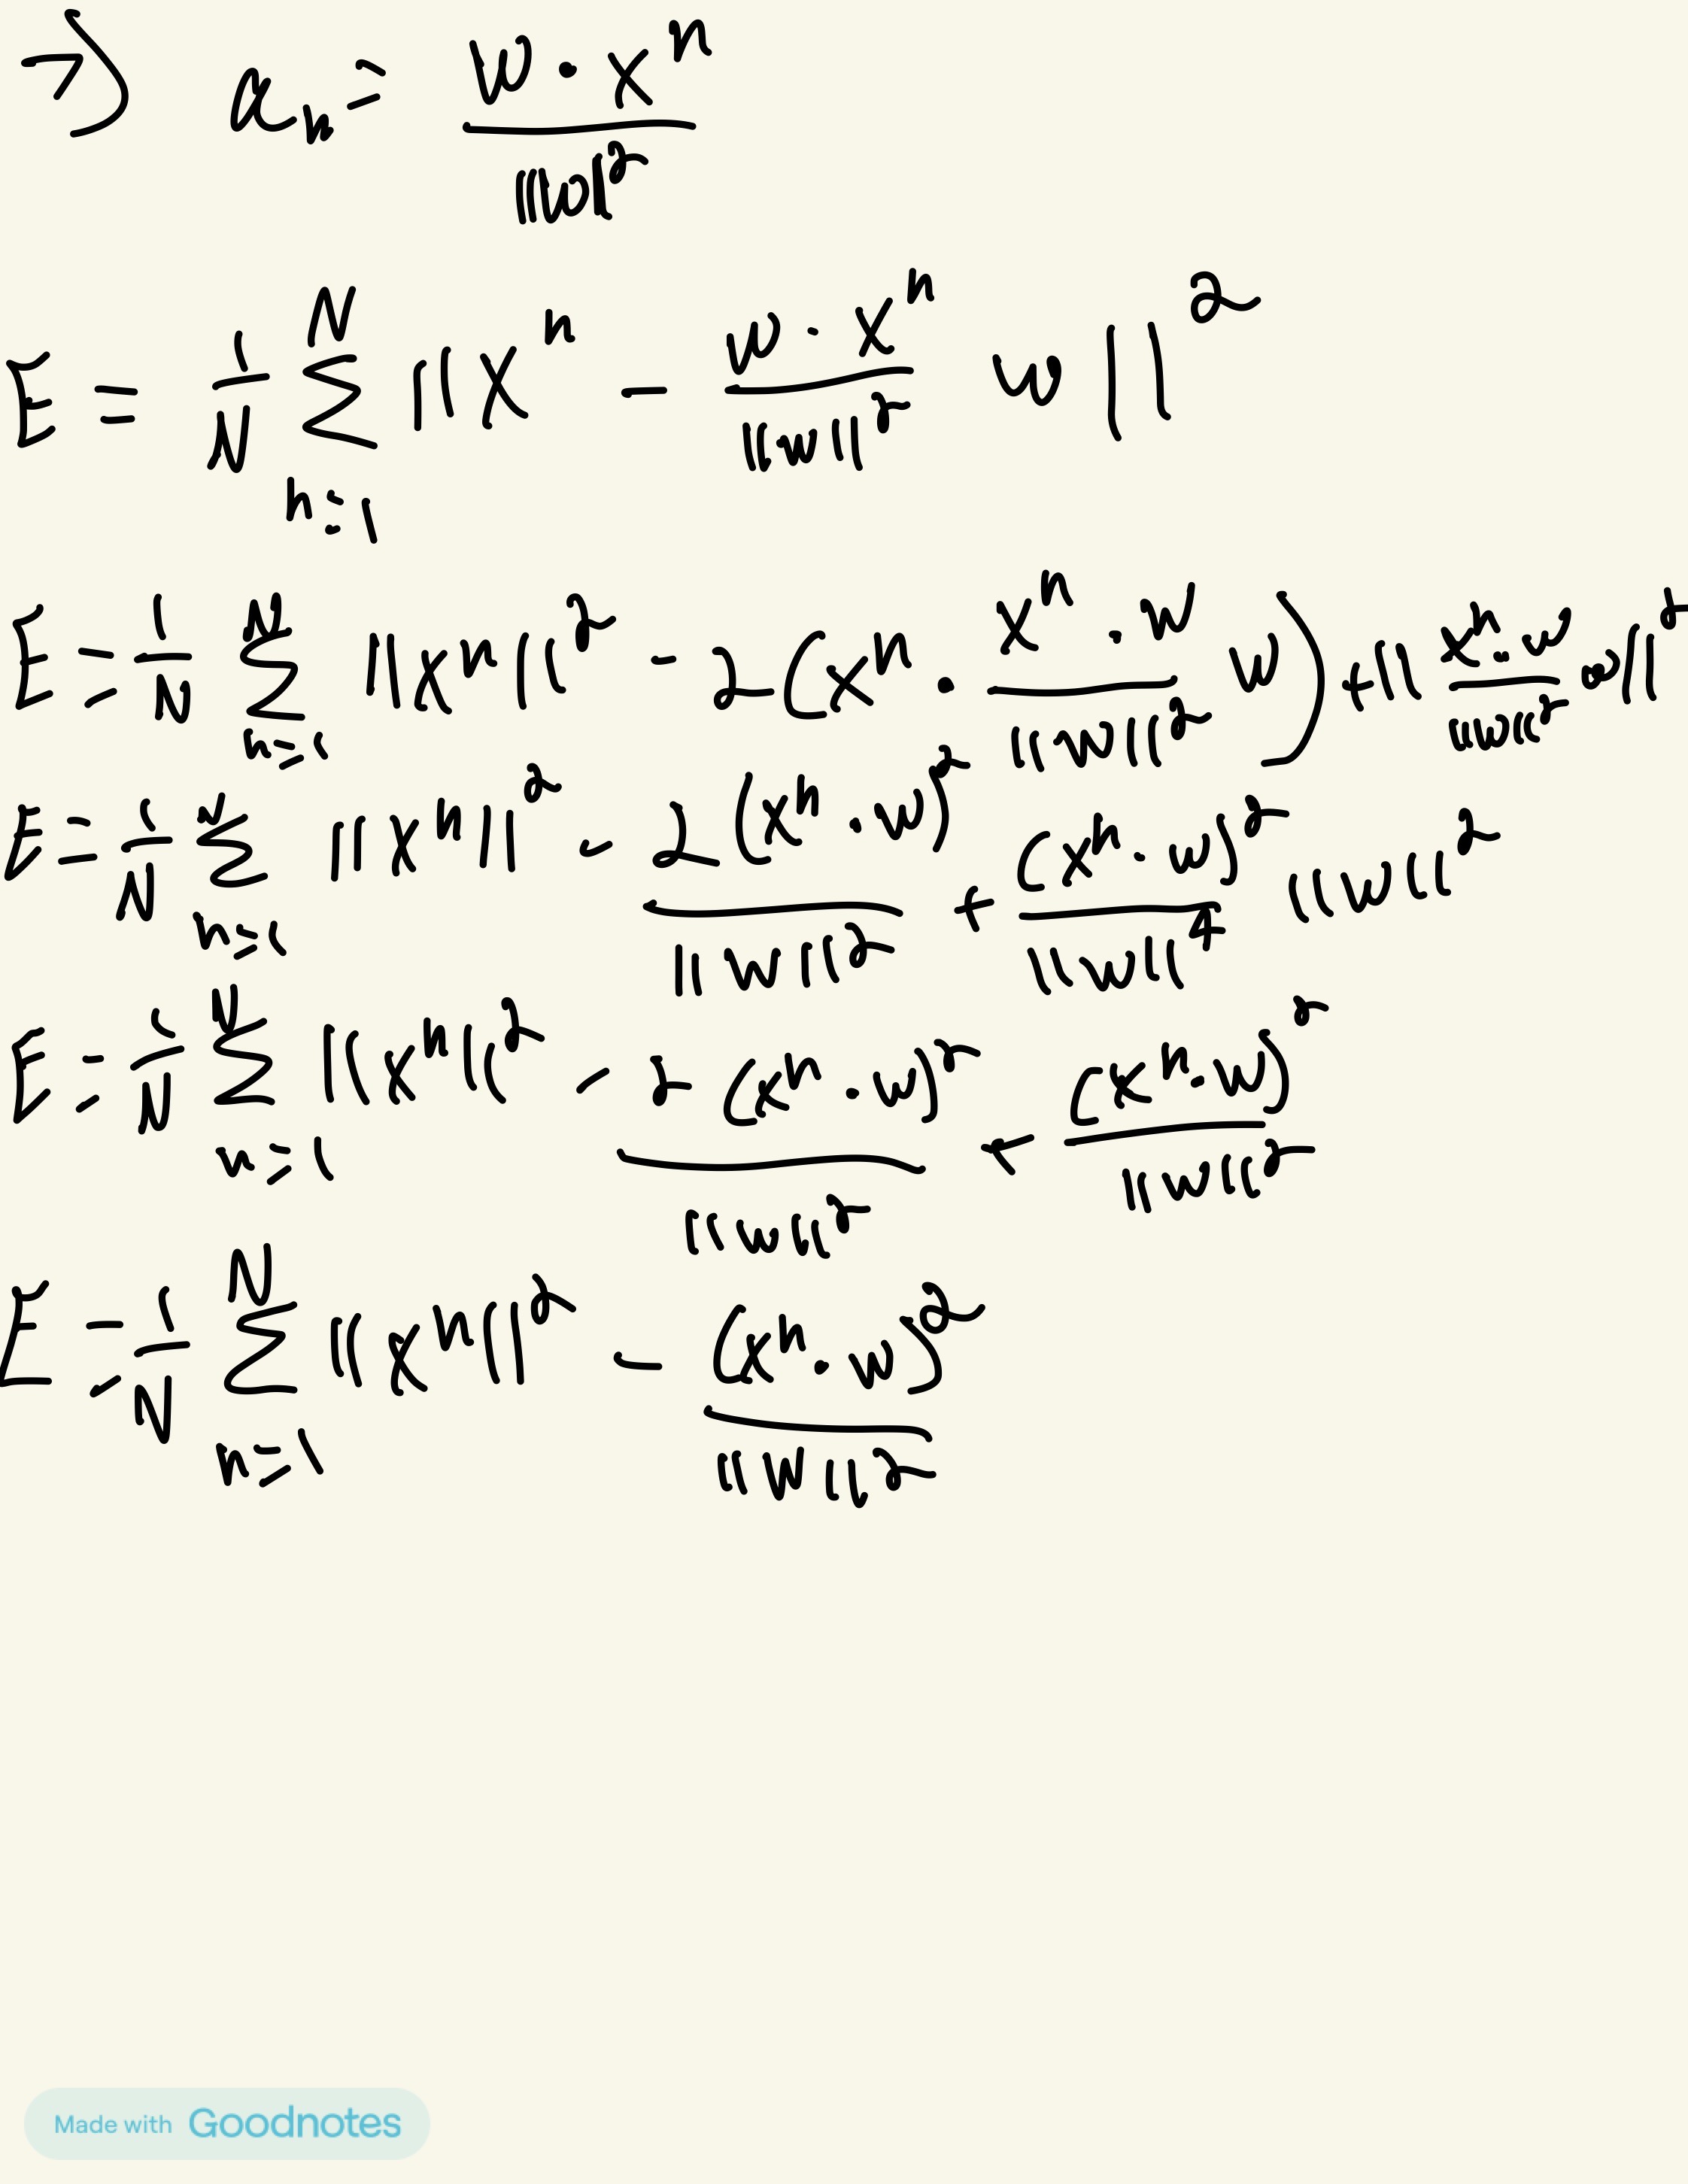 7) aₙ = w · xⁿ / ||w||²
E = 1/N Σ_{n=1}^{N} ||xⁿ - (w · xⁿ / ||w||²) w||²
E = 1/N Σ_{n=1}^{N} ||xⁿ||² - 2(xⁿ · (xⁿ · w / ||w||²) w) + ||(xⁿ · w / ||w||²) w||²
E = 1/N Σ_{n=1}^{N} ||xⁿ||² - 2(xⁿ · w)² / ||w||² + ((xⁿ · w)² / ||w||⁴) ||w||²
E = 1/N Σ_{n=1}^{N} ||xⁿ||² - 2(xⁿ · w)² / ||w||² + (xⁿ · w)² / ||w||²
E = 1/N Σ_{n=1}^{N} ||xⁿ||² - (xⁿ · w)² / ||w||²
Made with Goodnotes